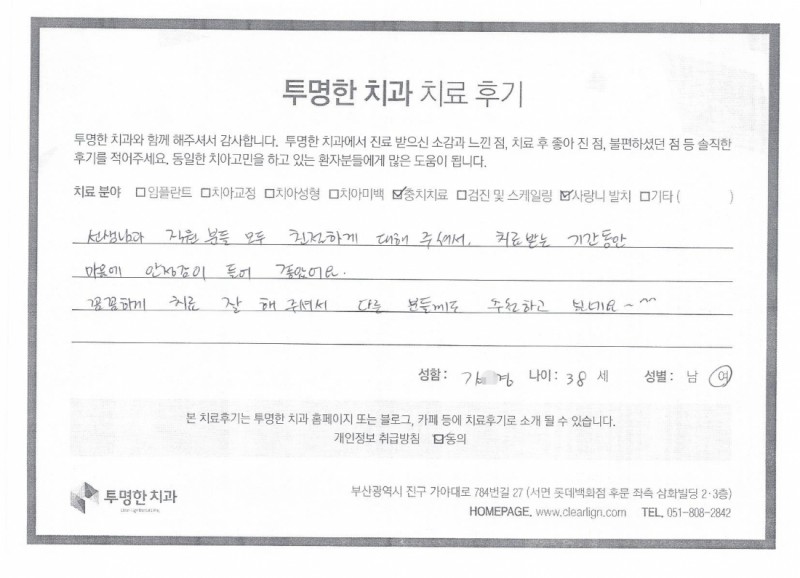 투명한 치과 치료 후기
투명한 치과와 함께 해주셔서 감사합니다. 투명한 치과에서 진료 받으신 소감과 느낀 점, 치료 후 좋아 진 점, 불편하셨던 점 등 솔직한
후기를 적어주세요. 동일한 치아고민을 하고 있는 환자분들에게 많은 도움이 됩니다.
치료 분야 □임플란트 □치아교정 □치아성형 □치아미백 ☑충치치료 □검진 및 스케일링 ☑사랑니 발치 □기타 ( )
선생님과 직원분들 모두 친절하게 대해 주셔서, 치료받는 기간동안
마음에 안정감이 들어 좋았어요.
꼼꼼하게 치료 잘 해 주셔서 다른 분들께도 추천하고 싶네요~ ^^
성함: 영 나이: 38 세 성별: 남 여
본 치료후기는 투명한 치과 홈페이지 또는 블로그, 카페 등에 치료후기로 소개 될 수 있습니다.
개인정보 취급방침 ☑동의
투명한 치과
부산광역시 진구 가야대로 784번길 27 (서면 롯데백화점 후문 좌측 삼화빌딩 2·3층)
HOMEPAGE. www.clearlign.com TEL. 051-808-2842